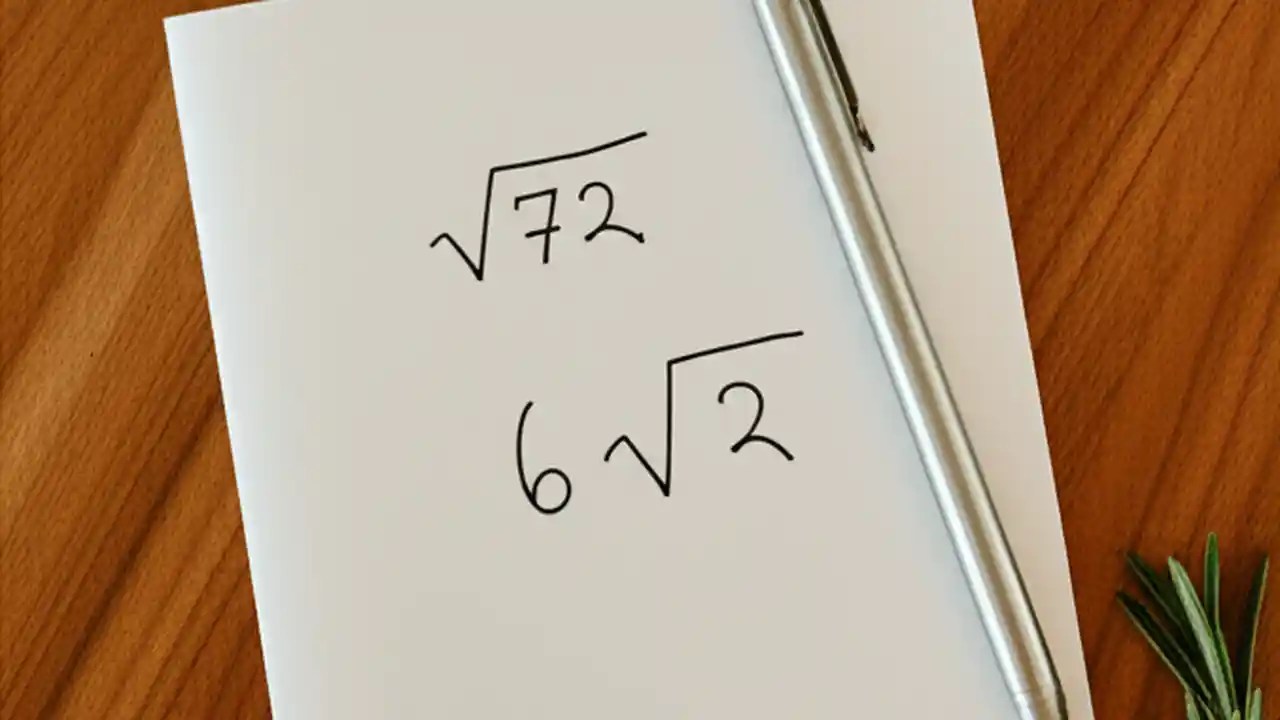 √72
6√2